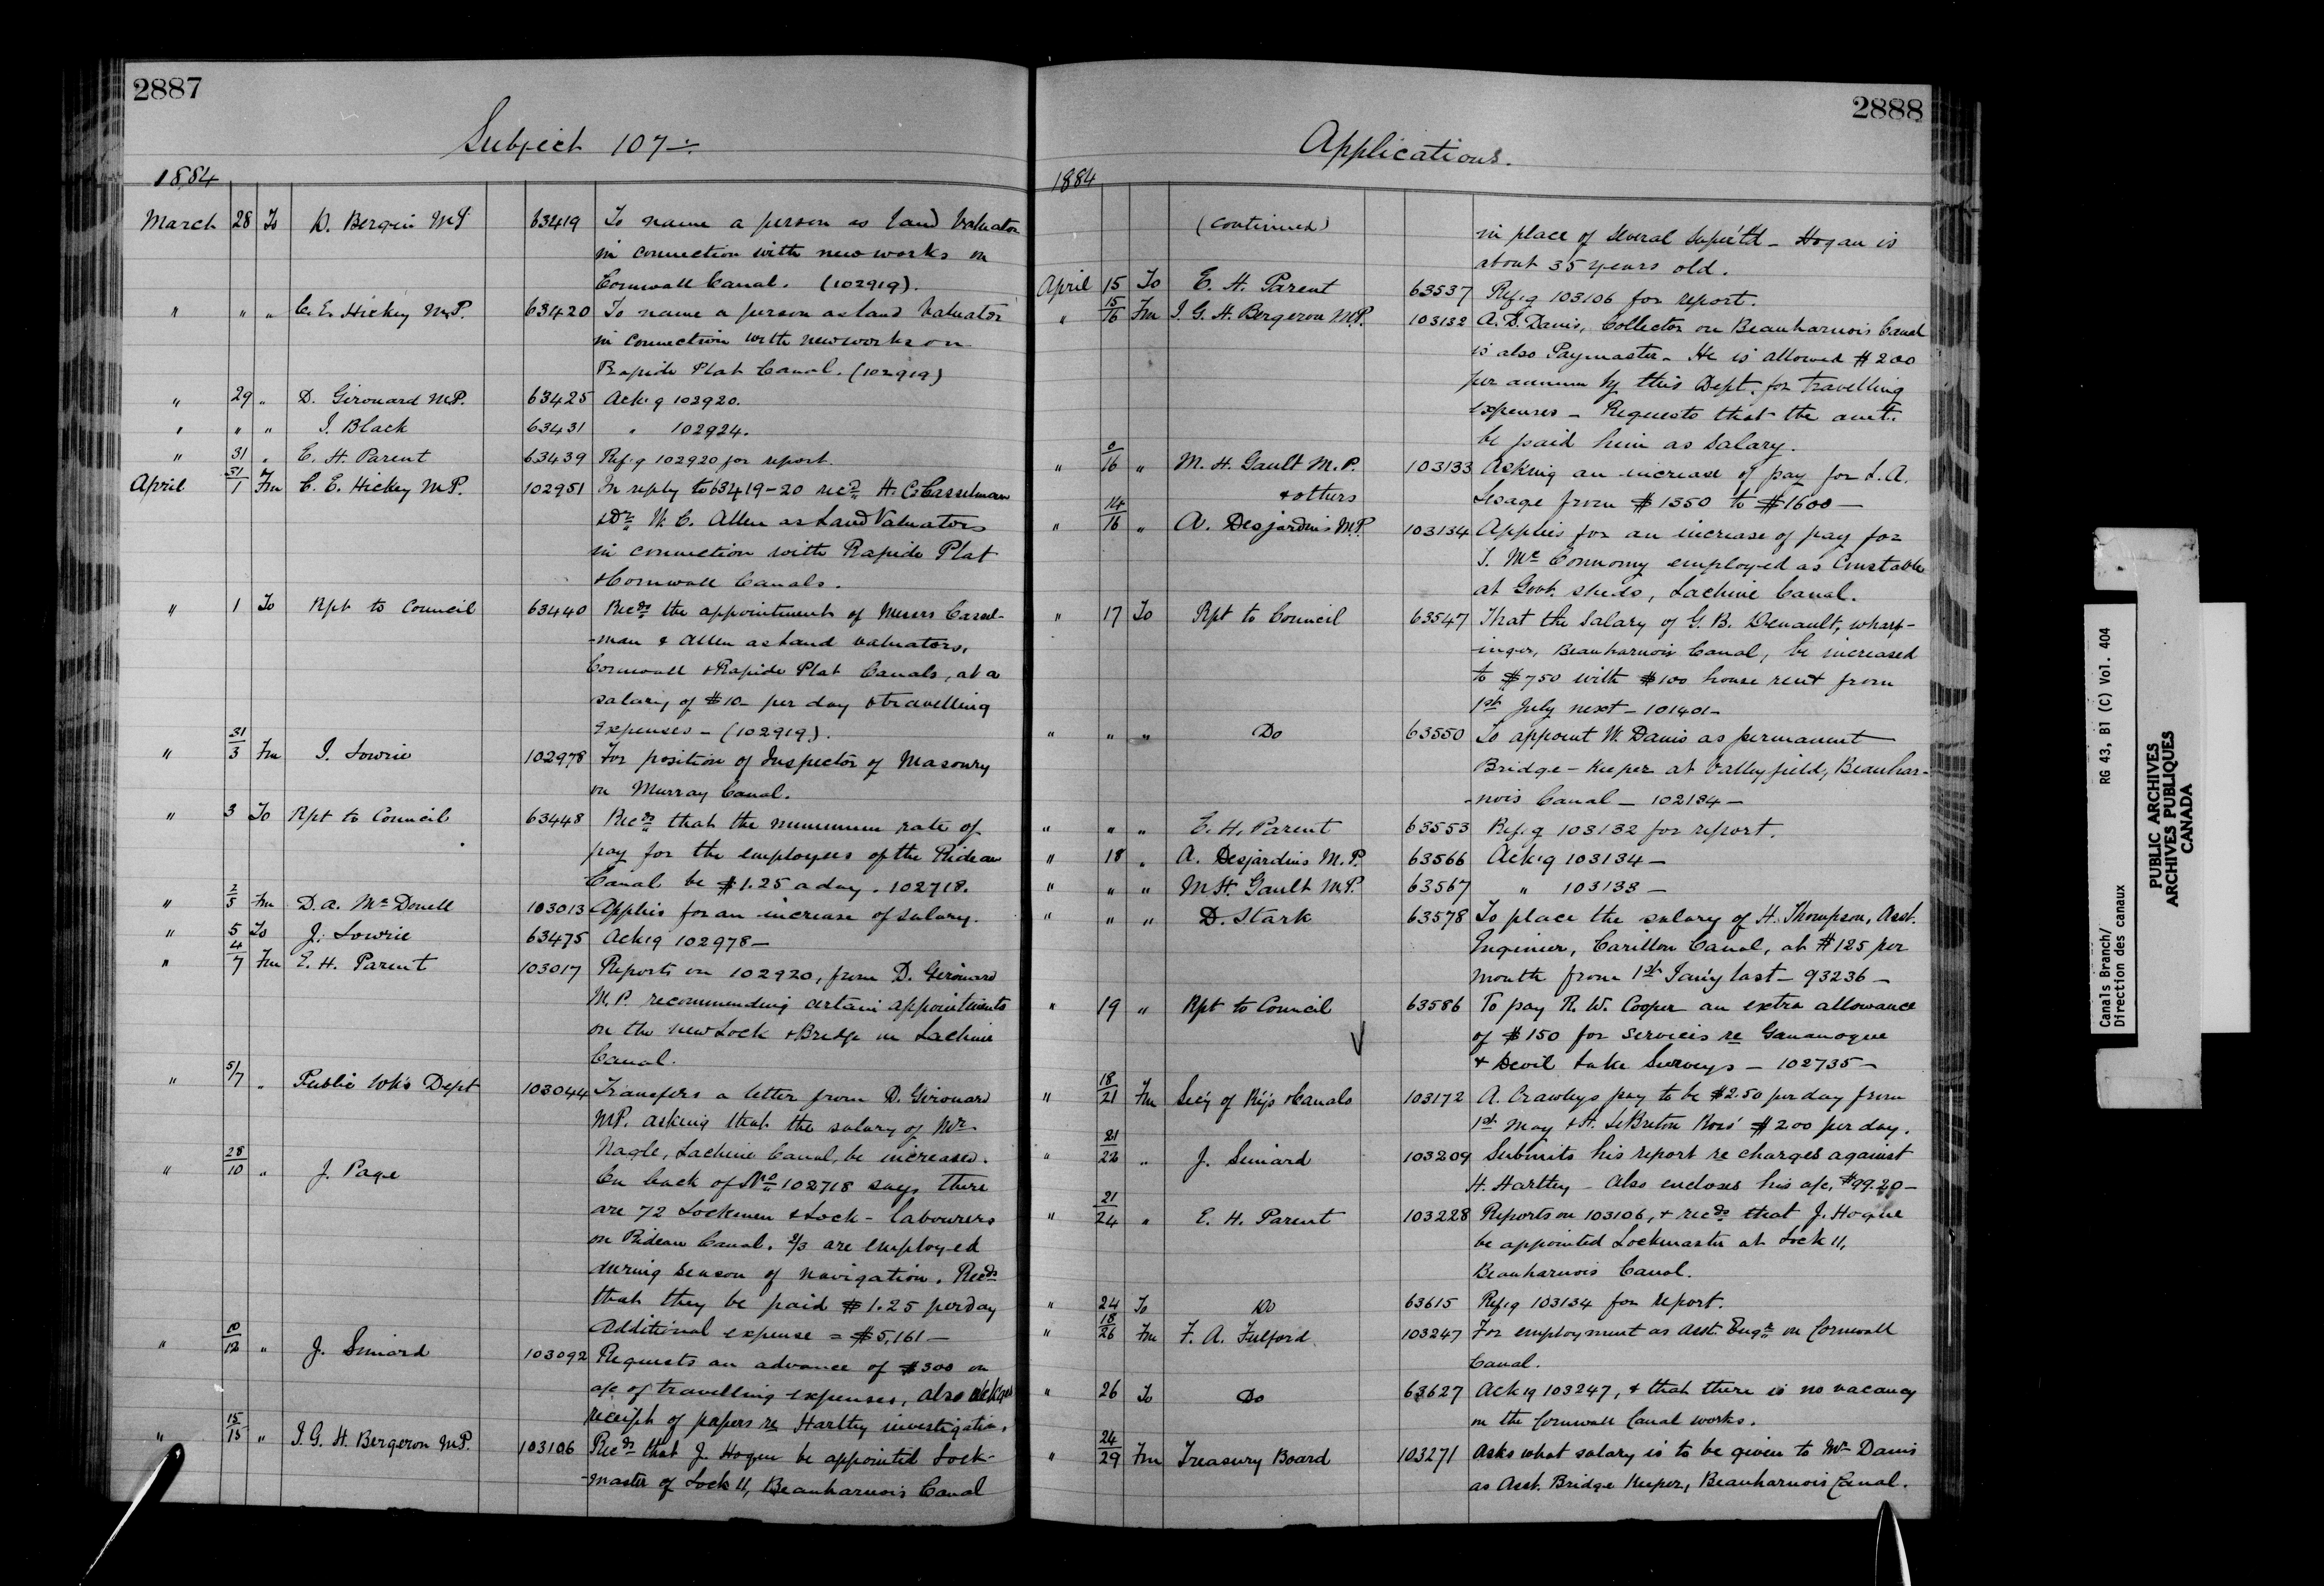 2887
Subject 107
1884
March 28 To D. Bergin M.P. 63419 To name a person as land Valuator
in connection with new works on
Cornwall Canal. (102919).
" " " C. E. Hickey M.P. 63420 To name a person as land Valuator
in connection with new works on
Rapide Plat Canal. (102919)
" 29 " D. Girouard M.P. 63425 Ack'g 102920.
" " " J. Black 63431 " 102924.
" 31 " E. H. Parent 63439 Ref.g 102920 for report.
April 31/1 Fm C. E. Hickey M.P. 102951 In reply to 63419-20 recds H. C. Casselman
& Dr. W. C. Allen as Land Valuators
in connection with Rapide Plat
& Cornwall Canals.
" 1 To Rpt to Council 63440 Recds the appointment of Messrs Cassel-
-man & Allen as Land valuators,
Cornwall & Rapide Plat Canals, at a
salary of $10- per day & travelling
expenses - (102919).
" 31/3 Fm J. Lowrie 102978 For position of Inspector of Masonry
on Murray Canal.
" 3 To Rpt to Council 63448 Recds that the minimum rate of
pay for the employees of the Rideau
Canal be $1.25 a day. 102718.
" 2/5 Fm D. A. McDonell 103013 Applies for an increase of salary.
" 5 To J. Lowrie 63475 Ack'g 102978-
" 4/7 Fm E. H. Parent 103017 Reports on 102920, from D. Girouard
M.P. recommending certain appointments
on the new Lock & Bridge on Lachine
Canal.
" 5/7 " Public Wks Dept 103044 Transfers a letter from D. Girouard
MP. asking that the salary of Mr.
Nagle, Lachine Canal, be increased.
" 28/10 " J. Page On back of No 102718 says there
are 72 Lockmen & Lock-labourers
on Rideau Canal. 2/3 are employed
during season of navigation. Recds
that they be paid $1.25 per day
Additional expense = $5,161-
" 10/12 " J. Simard 103092 Requests an advance of $300 on
a/c of travelling expenses, also
receipt of papers re Hartley investigation.
" 15/15 " J. G. H. Bergeron M.P. 103106 Recds that J. Hogue be appointed Lock-
-master of Lock 11, Beauharnois Canal
2888
Applications.
1884
(continued) in place of Several Supe'td - Hogan is
about 35 years old.
April 15 To E. H. Parent 63537 Ref.g 103106 for report.
" 15/16 Fm J. G. H. Bergeron M.P. 103132 A. D. Danis, Collector on Beauharnois Canal
is also Paymaster - He is allowed $200
per annum by this Dept. for travelling
expenses - Requests that the amt.
be paid him as salary.
" /16 " M. H. Gault M.P. 103133 Asking an increase of pay for L. A.
& others Lesage from $1350 to $1600-
" 14/16 " A. Desjardins M.P. 103134 Applies for an increase of pay for
T. McConnomy employed as Constable
at Govt. sheds, Lachine Canal.
" 17 To Rpt to Council 63547 That the salary of G. B. Denault, wharf-
-inger, Beauharnois Canal, be increased
to $750 with $100 house rent from
1st July next - 101401-
" " " Do 63550 To appoint W. Danis as permanent
Bridge-Keeper at Valleyfield, Beauhar-
-nois Canal - 102134-
" " " E. H. Parent 63553 Ref.g 103132 for report.
" 18 " A. Desjardins M.P. 63566 Ack'g 103134-
" " " M. H. Gault M.P. 63567 " 103133-
" " " D. Stark 63578 To place the salary of H. Thompson, Asst.
Engineer, Carillon Canal, at $125 per
month from 1st Jan'y last - 93236-
" 19 " Rpt to Council 63586 To pay R. W. Cooper an extra allowance
of $150 for services re Gananoque
& Devil Lake Surveys - 102735-
" 18/21 Fm Sec'y of Ry's & Canals 103172 A. Crawleys pay to be $2.50 per day from
1st May & H. LeBreton Ross' $2.00 per day.
" 21/22 " J. Simard 103209 Submits his report re charges against
H. Hartley - Also encloses his a/c, $99.20-
" 21/24 " E. H. Parent 103228 Reports on 103106, & recds that J. Hogue
be appointed Lockmaster at Lock 11,
Beauharnois Canal.
" 24 To Do 63615 Ref.g 103134 for report.
" 18/26 Fm F. A. Fulford 103247 For employment as Asst. Engr on Cornwall
Canal.
" 26 To Do 63627 Ack'g 103247, & that there is no vacancy
on the Cornwall Canal works.
" 24/29 Fm Treasury Board 103271 Asks what salary is to be given to Mr Danis
as Asst. Bridge Keeper, Beauharnois Canal.
Canals Branch/ RG 43, B1 (C) Vol. 404
Direction des canaux
PUBLIC ARCHIVES
ARCHIVES PUBLIQUES
CANADA